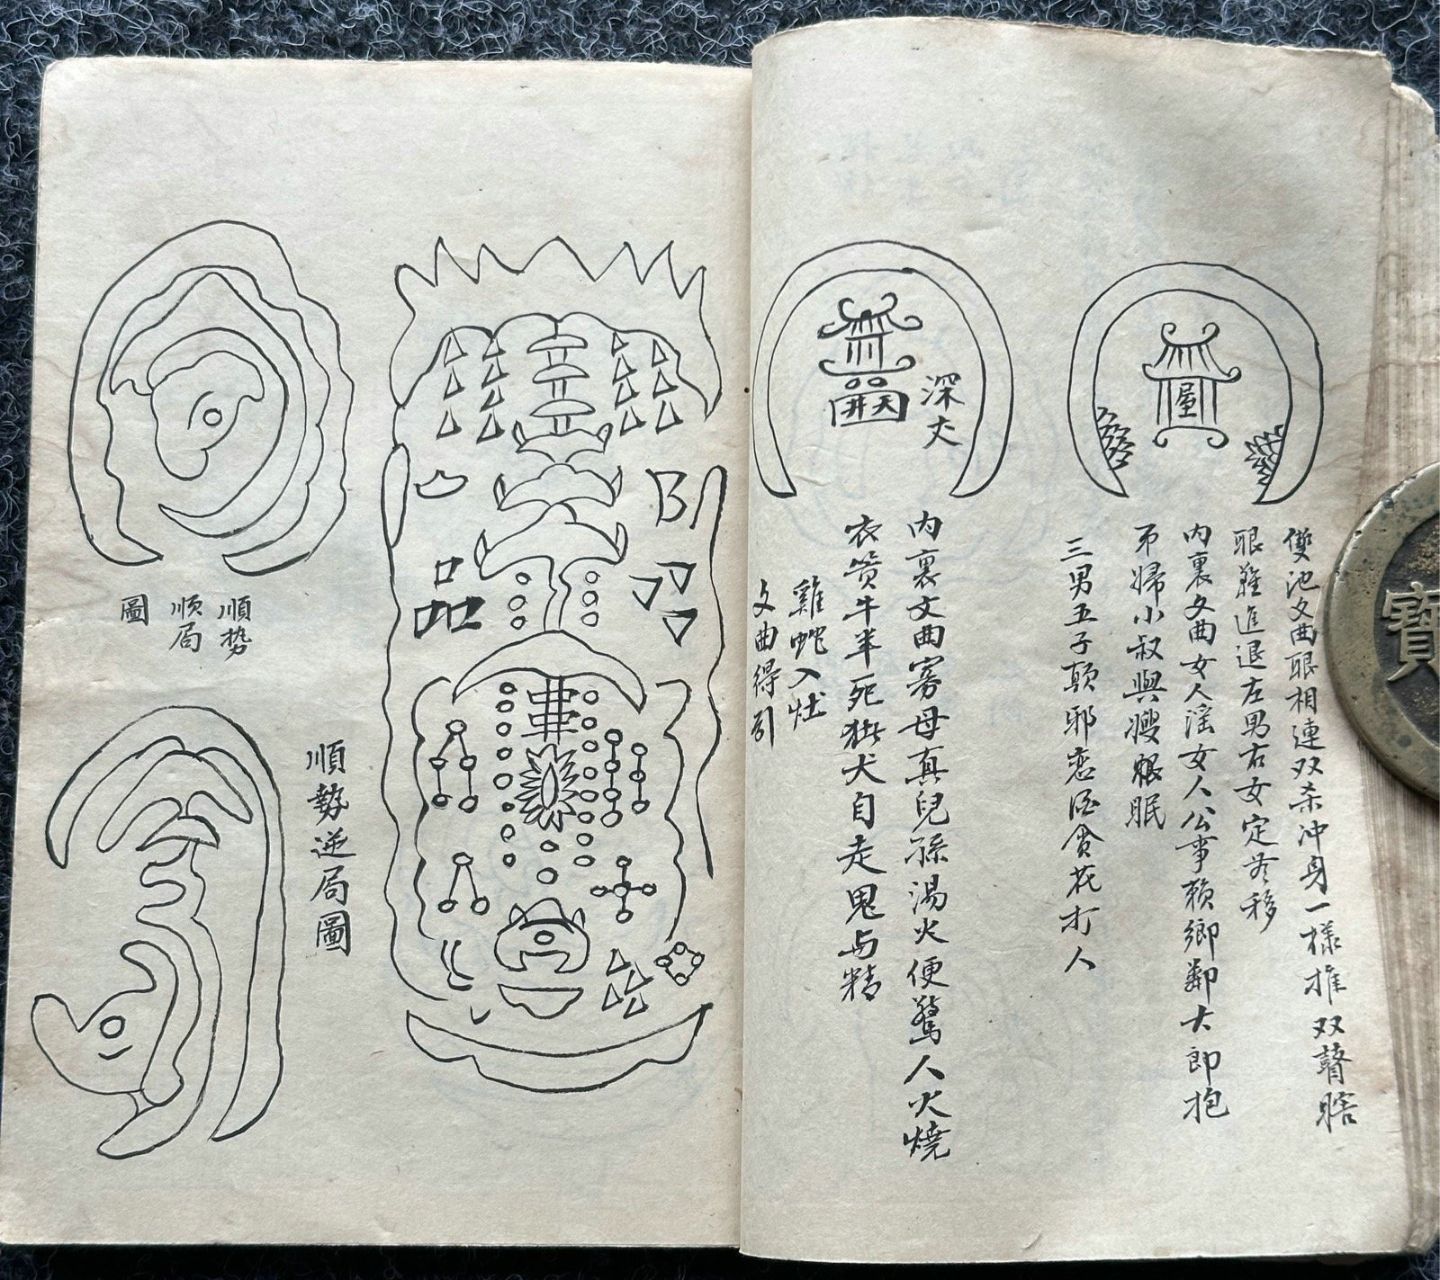 屋
雙池文曲眼相連双杀冲身一樣推双瞽瞎
眼難進退左男右女定無移
内裏文曲女人淫女人公事賴鄉鄰大郎抱
弟婦小叔與嫂眼眠
三男五子顛邪恋酒貪花打人
天井
深丈
内裏文曲寡母真兒孫湯火便驚人火燒
衣贅牛羊死猪犬自走鬼与精
雞蛇入灶
文曲得引
順势
順局
圖
順勢逆局圖